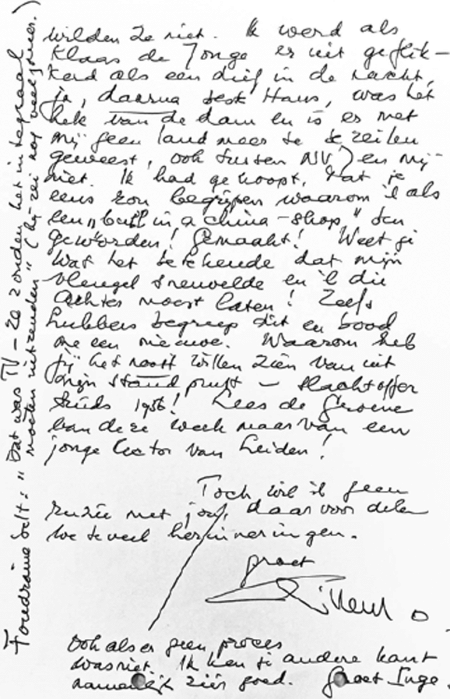 wilden ze niet. Ik werd als
Klaas de Jonge er uit geflik-
kerd als een dief in de nacht,
ja, daarna best Hans, was het
hek van de dam en is er met
mij geen land meer te bezeilen
geweest, ook tussen NV) en mij-
niet. Ik had gehoopt, dat je
eens zou begrijpen waarom 'k als
een "bull in a china-shop" ben
geworden! Gemaakt! Weet je
wat het betekende dat mijn
vleugel sneuvelde en 'k die
achter moest laten! Zelfs
Lubbers begreep dit en bood
me een nieuwe. Waarom heb
jij het nooit willen zien van uit
mijn standpunt – slachtoffer
sinds 1956! Lees de Groene
van deze week maar van een
jonge lector van Leiden!
Toch wil ik geen
ruzie met jou, daarvoor delen
we te veel herinneringen.
groet
Willem
Ook als er geen proces
was niet. Ik ken je andere kant
namelijk zéér goed. Groet Inge.
Foudraine belt: "Dat was TV – ze zonden het integraal
moeten uitzenden" (hij zei nog veel meer.)